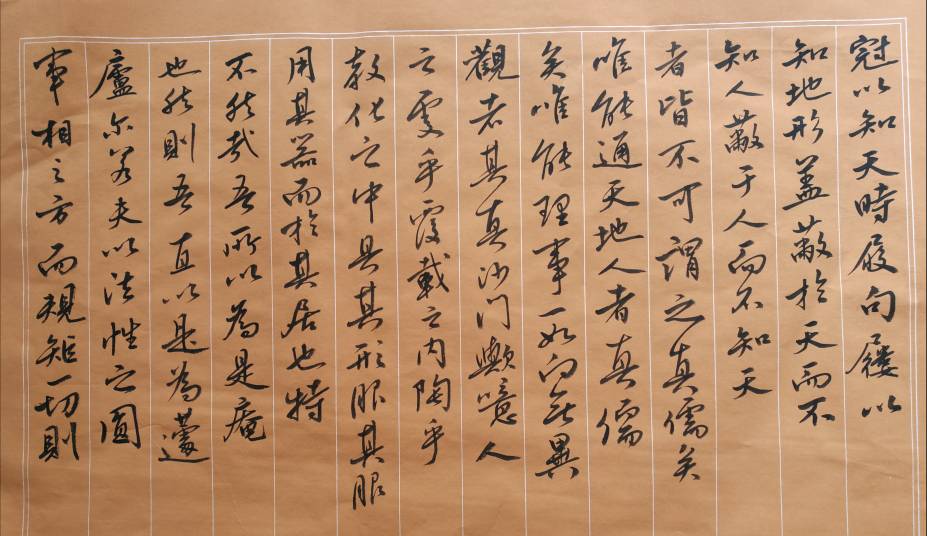 冠以知天時履句屨以
知地形蓋蔽於天而不
知人蔽于人而不知天
者皆不可謂之真儒矣
唯能通天地人者真儒
矣唯能理事一如向无異
觀者其真沙门歟噫人
之処乎覆載之内陶乎
教化之中具其形服其服
用其器而於其居也特
不然哉吾所以為是庵
也然則吾直以是為蘧
廬尔若夫以法性之圓
事相之方而規矩一切則